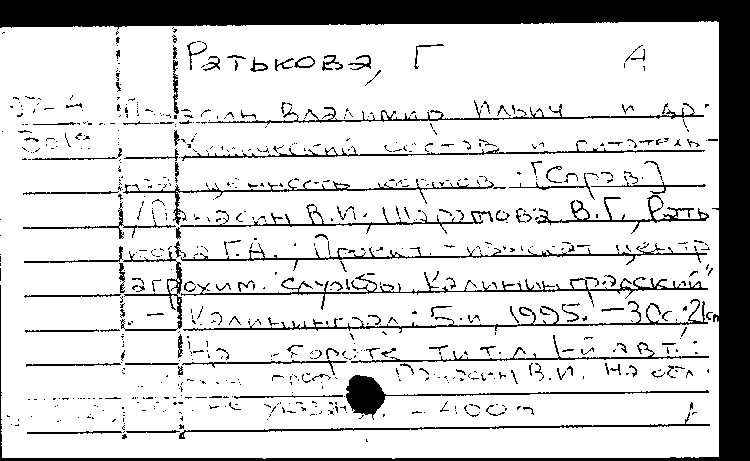 Ратькова, Г А
97-4 Панасин, Владимир Ильич и др.
3018 Химический состав и питатель-
ная ценность кормов : [Справ.]
/Панасин В.И., Шаратова В.Г., Рать-
кова Г.А. ; Проект.-изыскат центр
агрохим. службы "Калининградский"
. - Калининград : Б.и, 1995. - 30с.; 21см
На обороте тит.л. 1-й авт.:
проф. Панасин В.И. На обл.
не указаны. - 400